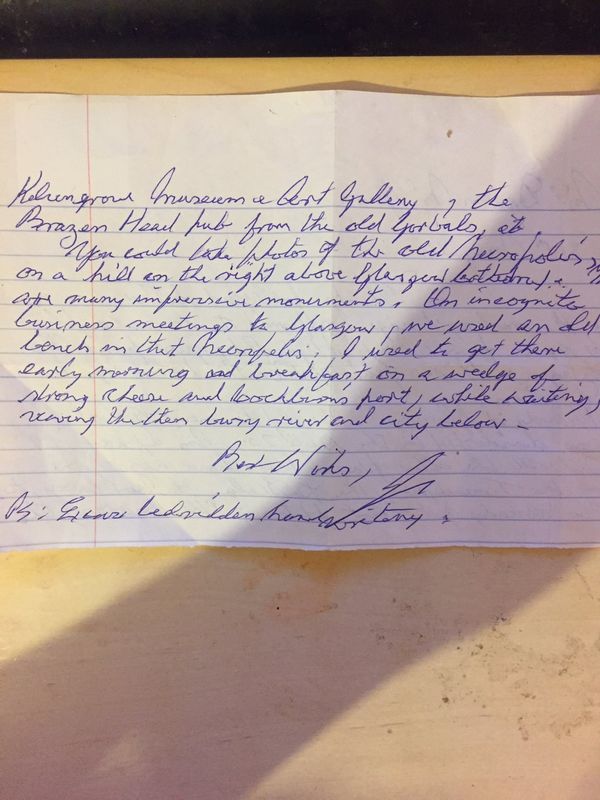 Kelvingrove Museum & Art Gallery, the
Brazen Head pub from the old Gorbals, et
You could take photos of the old Necropolis,
on a hill on the right above Glasgow Cathedral,
are many impressive monuments. On incognito
business meetings to Glasgow, we used an old
bench in that Necropolis. I used to get there
early morning and breakfast on a wedge of
strong cheese and port, while waiting,
viewing the then busy river and city below -
Best Wishes,
PS: Excuse bedridden handwriting.